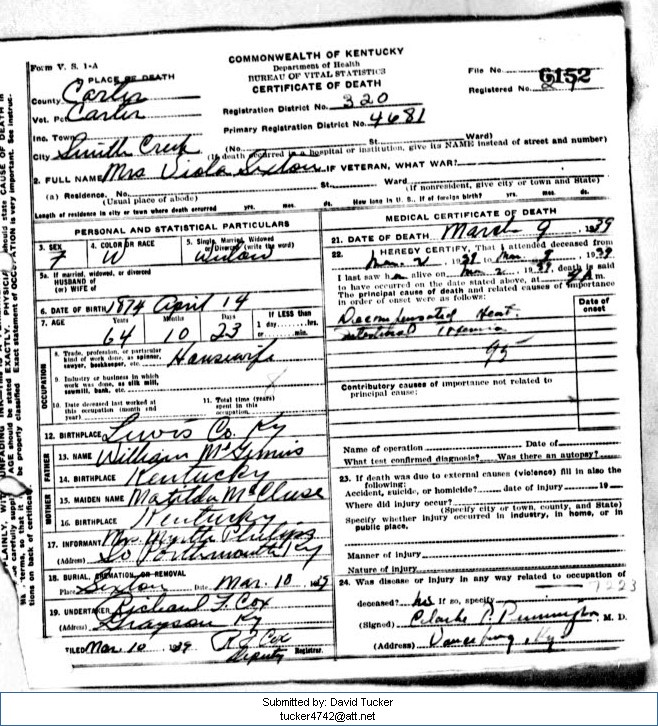 Form V. S. 1-A
COMMONWEALTH OF KENTUCKY
Department of Health
BUREAU OF VITAL STATISTICS
CERTIFICATE OF DEATH
File No. 6152
Registered No.
PLACE OF DEATH
County Carter
Vot. Pct. Carter
Inc. Town
City Smith Creek
Registration District No. 320
Primary Registration District No. 4681
(No. St. Ward)
(If death occurred in a hospital or institution, give its NAME instead of street and number)
2. FULL NAME Mrs Viola Sexton IF VETERAN, WHAT WAR?
(a) Residence. No. St. Ward
(Usual place of abode) (If nonresident, give city or town and State)
Length of residence in city or town where death occurred yrs. mos. ds. How long in U. S., if of foreign birth? yrs. mos. ds.
PERSONAL AND STATISTICAL PARTICULARS
3. SEX 4. COLOR OR RACE 5. Single, Married, Widowed
or Divorced (write the word)
F W Widow
5a. If married, widowed, or divorced
HUSBAND of
(or) WIFE of
6. DATE OF BIRTH 1874 April 14
7. AGE Years Months Days If LESS than
1 day hrs.
or min.
64 10 23
OCCUPATION
8. Trade, profession, or particular
kind of work done, as spinner,
sawyer, bookkeeper, etc. Housewife
9. Industry or business in which
work was done, as silk mill,
sawmill, bank, etc.
10. Date deceased last worked at
this occupation (month and
year)
11. Total time (years)
spent in this
occupation
12. BIRTHPLACE Lewis Co. Ky
FATHER
13. NAME William McGinnis
14. BIRTHPLACE Kentucky
MOTHER
15. MAIDEN NAME Matilda
16. BIRTHPLACE Kentucky
17. INFORMANT Mrs Phillips
(Address) So Portsmouth Ky
18. BURIAL, CREMATION, OR REMOVAL
Place Sexton Date Mar. 10 1939
19. UNDERTAKER Richard F. Cox
(Address) Grayson Ky
FILED Mar 10 1939 Cox
Deputy Registrar.
MEDICAL CERTIFICATE OF DEATH
21. DATE OF DEATH March 9 1939
22. I HEREBY CERTIFY, That I attended deceased from
Mar. 2 1939 to Mar. 9 1939
I last saw her alive on Mar 2 1939, death is said
to have occurred on the date stated above, at m.
The principal cause of death and related causes of importance
in order of onset were as follows:
Date of
onset
Decompensated Heart.
95
Contributory causes of importance not related to
principal cause:
Name of operation Date of
What test confirmed diagnosis? Was there an autopsy?
23. If death was due to external causes (violence) fill in also the
following:
Accident, suicide, or homicide? date of injury 19
Where did injury occur?
(Specify city or town, county, and State)
Specify whether injury occurred in industry, in home, or in
public place.
Manner of injury
Nature of injury
24. Was disease or injury in any way related to occupation of
deceased? no If so, specify
(Signed) Clarke P. Pennington M. D.
(Address) Vanceburg, Ky.
Submitted by: David Tucker
tucker4742@att.net